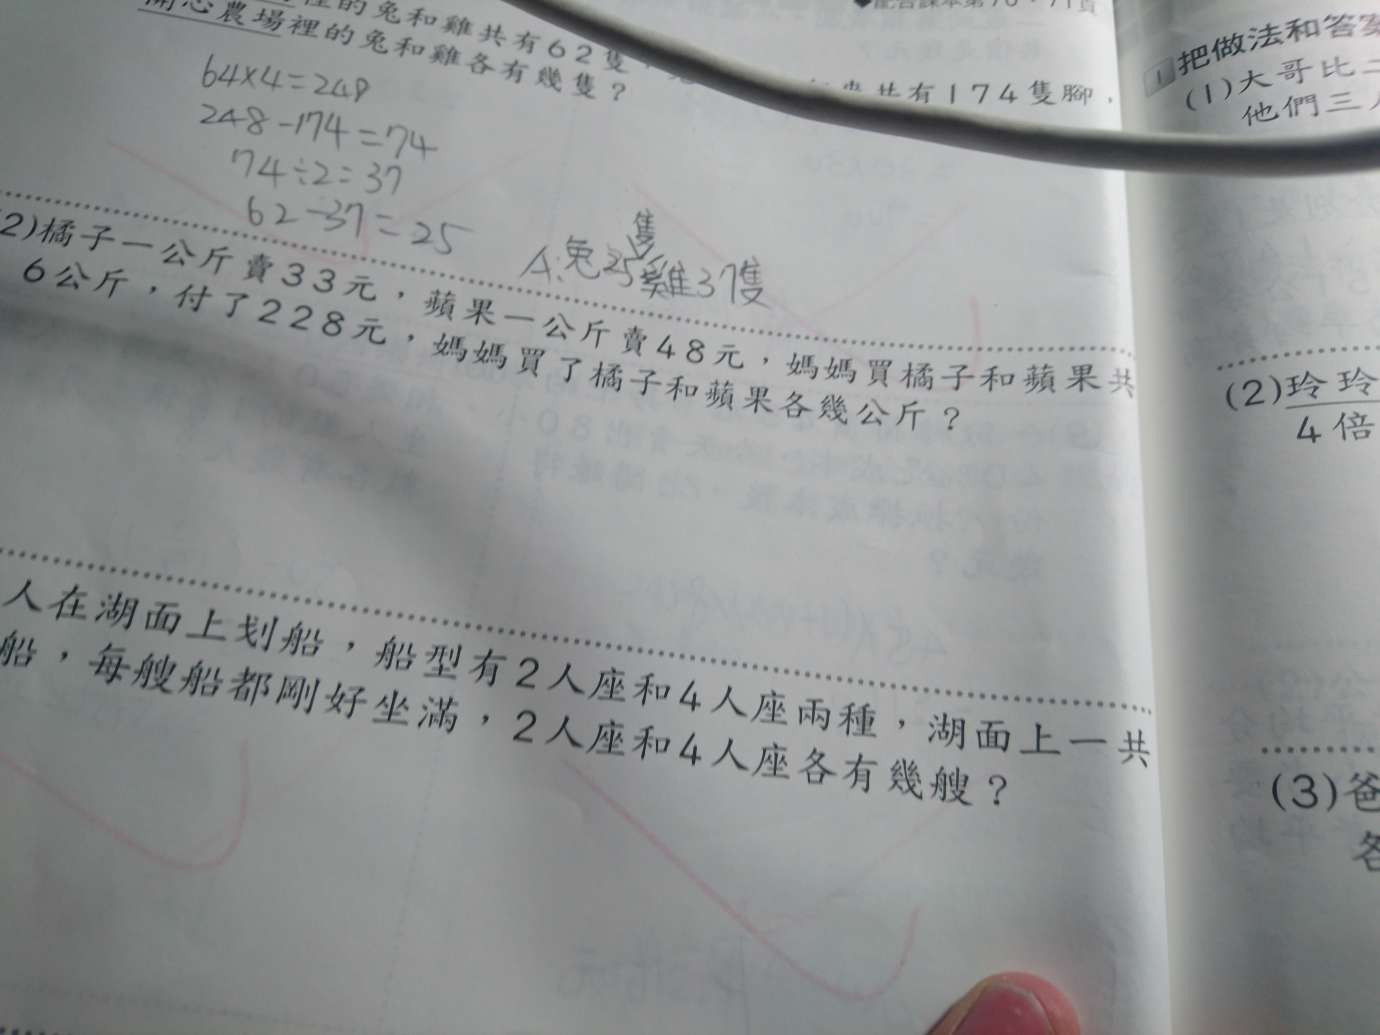 ◆配合課本第70、71頁
裡的兔和雞共有62隻，
共有174隻腳，
開心農場裡的兔和雞各有幾隻？
64×4=248
248-174=74
74÷2=37
62-37=25
A:兔25隻雞37隻
(2)橘子一公斤賣33元，蘋果一公斤賣48元，媽媽買橘子和蘋果共
6公斤，付了228元，媽媽買了橘子和蘋果各幾公斤？
人在湖面上划船，船型有2人座和4人座兩種，湖面上一共
船，每艘船都剛好坐滿，2人座和4人座各有幾艘？
1 把做法和答案
(1)大哥比二
他們三人
(2)玲玲
4倍
(3)爸
各